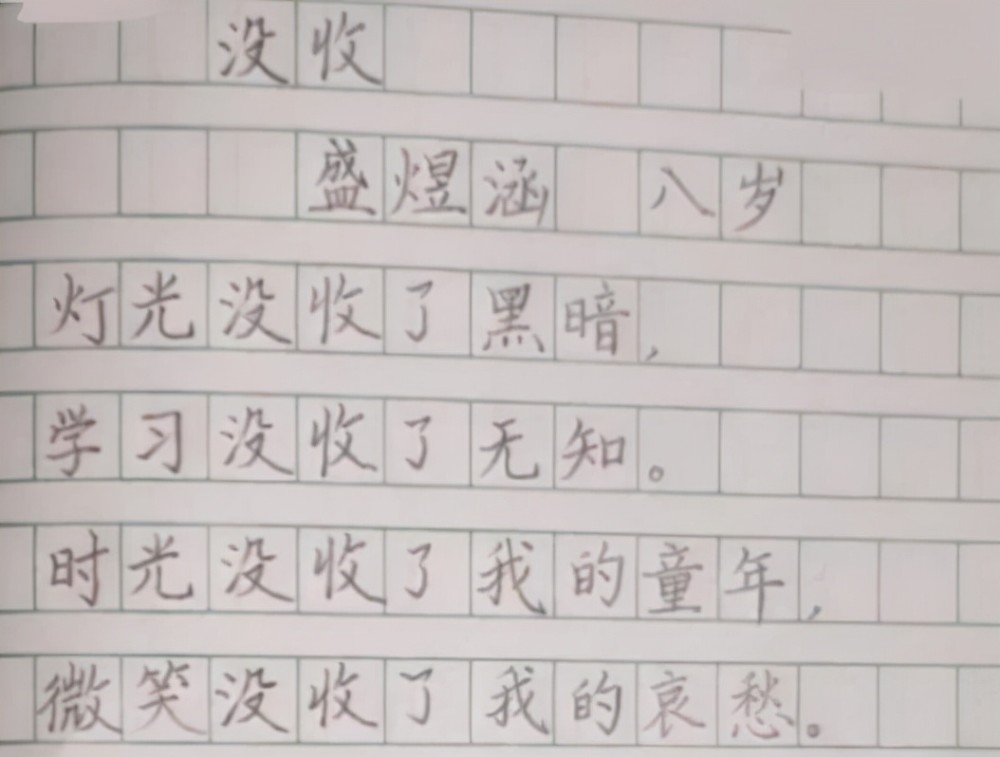 没收
盛煜涵 八岁
灯光没收了黑暗,
学习没收了无知。
时光没收了我的童年,
微笑没收了我的哀愁。